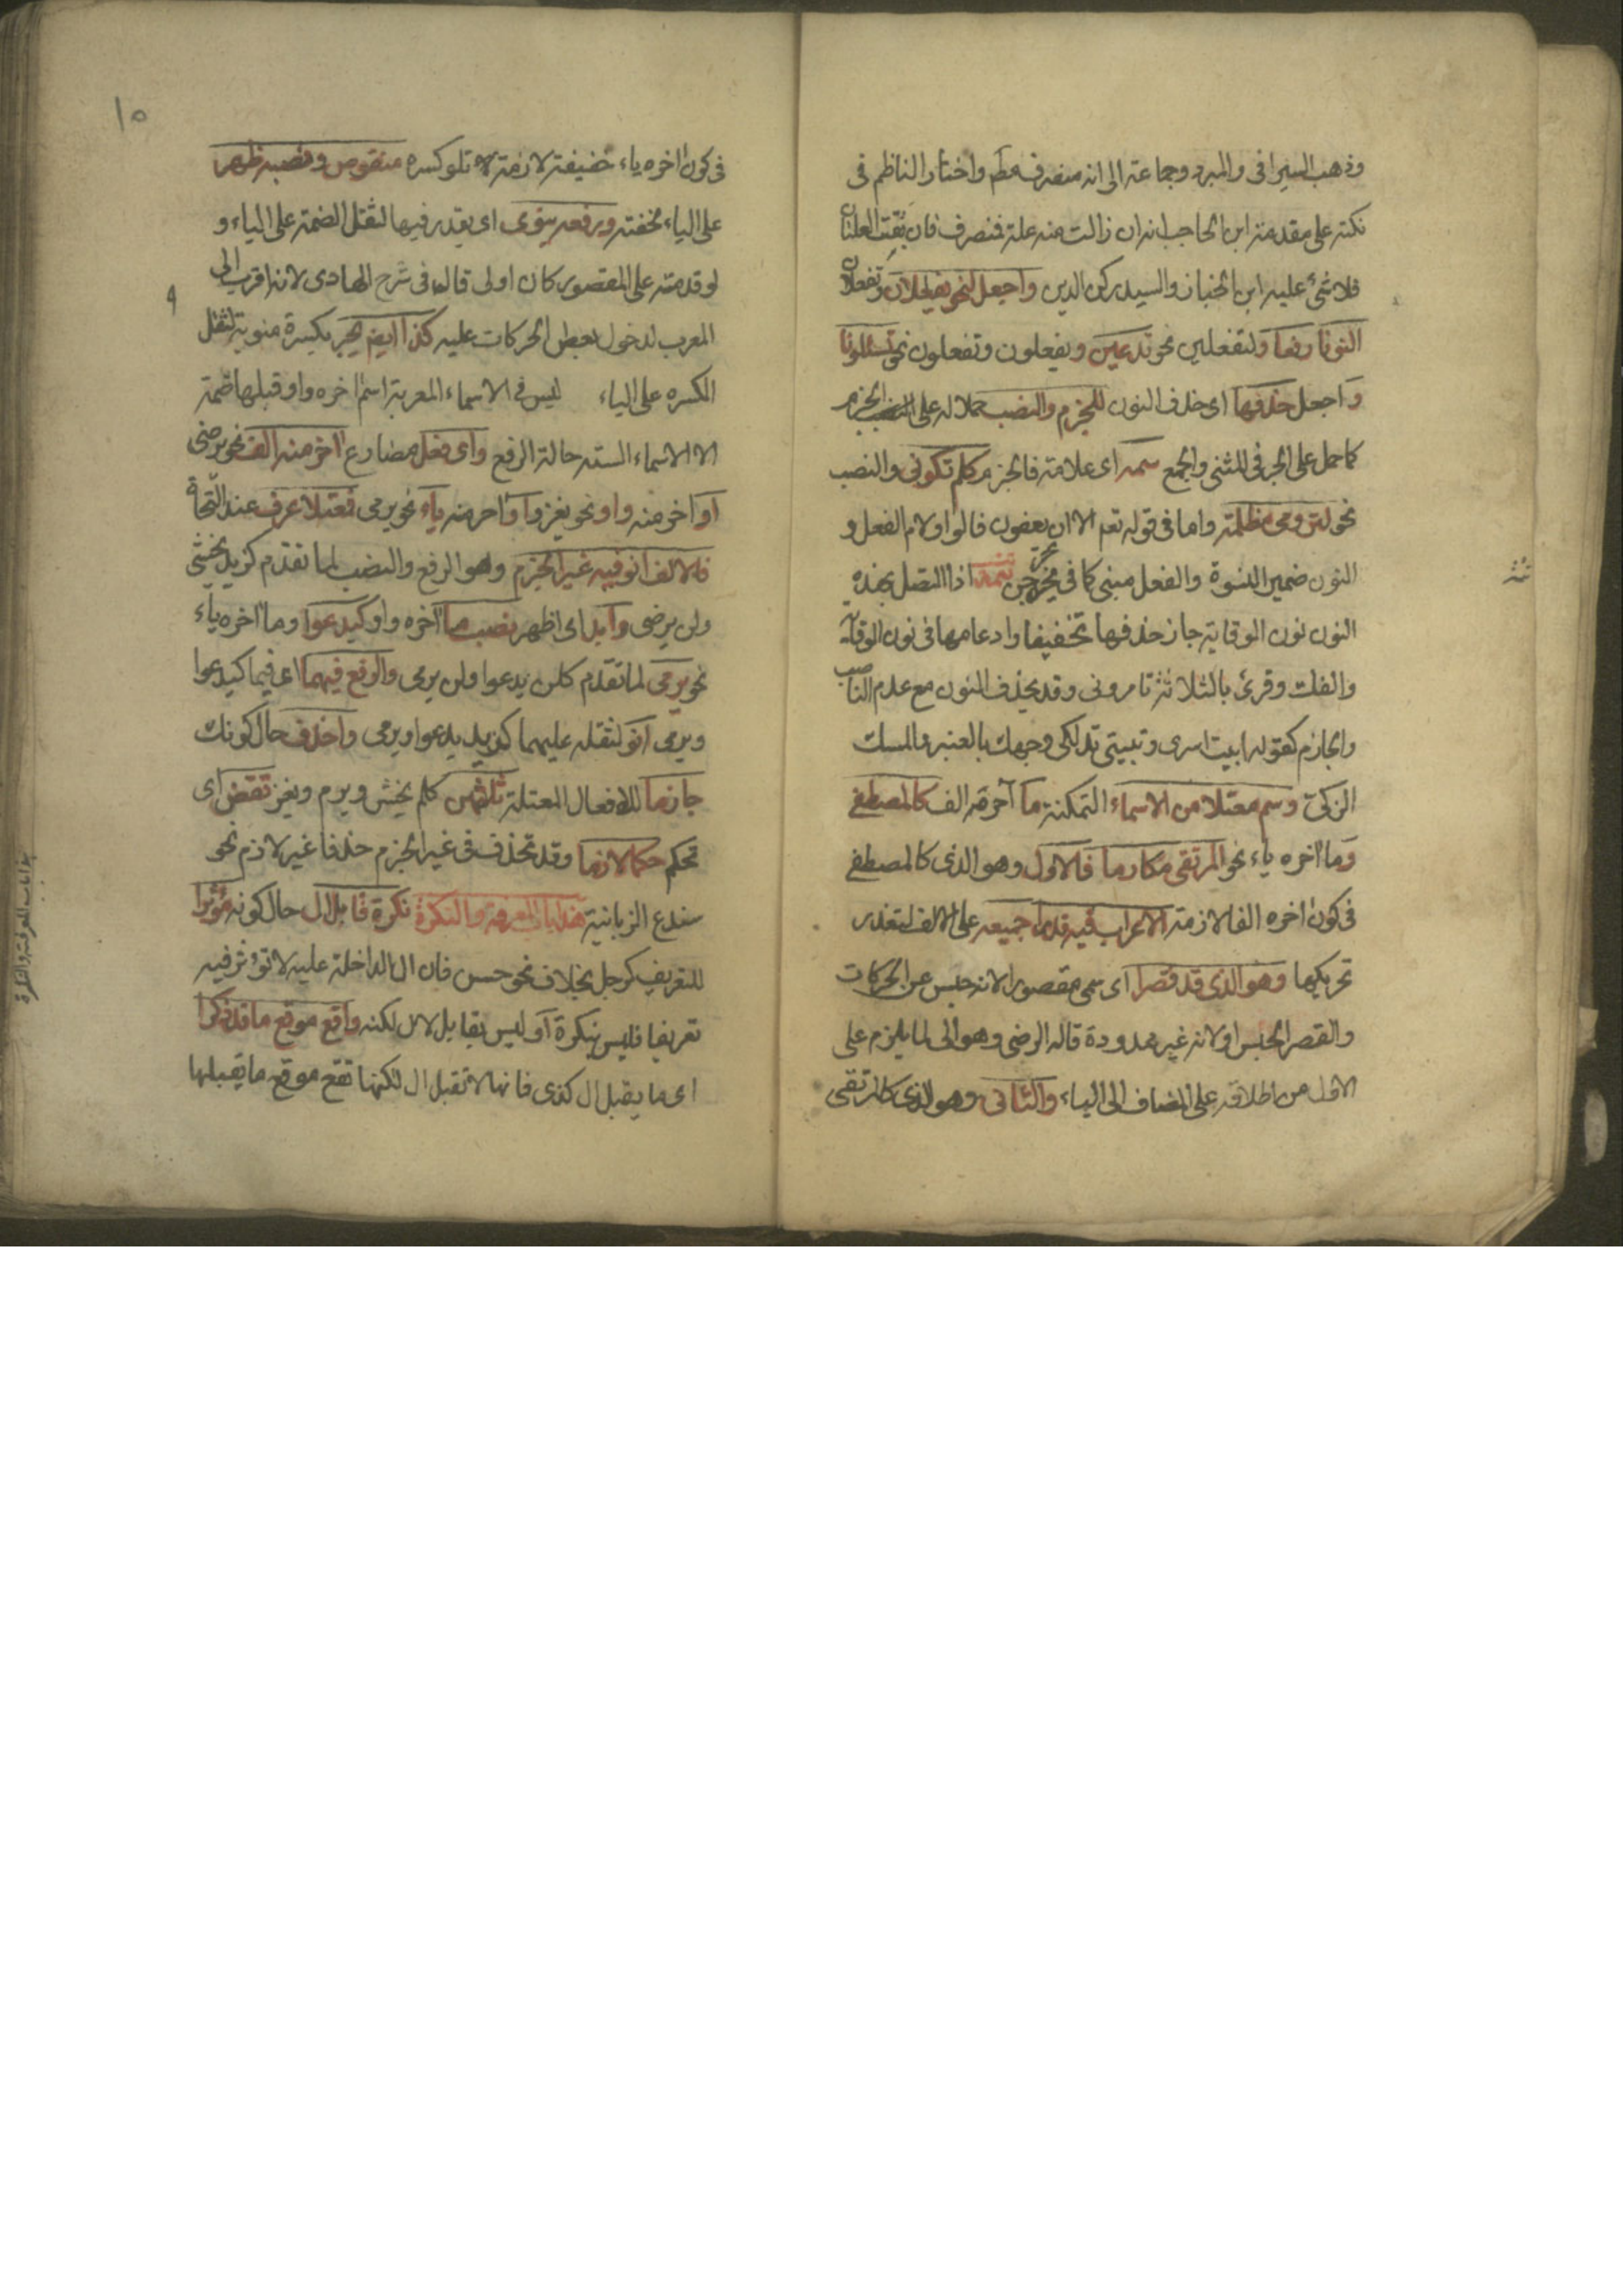 وذهب السيرافى والمبرد وجماعة الى انه منصرف مطم واختار الناظم فى
نكته على مقدمة ابن الحاجب انه ان زالت منه علة فمنصرف فان بقيت العلتان
فلا مشى عليه ابن الخباز والسيد ركن الدين واجعل لنحو يفعلان وتفعلان
النونا رفعا ولتفعلين نحو تدعين ويفعلون وتفعلون نحو تسئلونا
واجعل حذفها اى حذف النون للجزم والنصب حملا له على الجزم
كما حمل على الجر فى المثنى والجمع سمه اى علامة فالجزم كلم تكونى والنصب
نحو لترومى مظلمة واما فى قوله تعم الا ان يعفون فالواو لام الفعل و
النون ضمير النسوة والفعل مبنى كما فى يخرجن تتمه اذا اتصل بهذه
النون نون الوقاية جاز حذفها تخفيفا وادغامها فى نون الوقاية
والفك وقرئ بالثلاثة تامرونى وقد يحذف النون مع عدم الناصب
والجازم كقوله ابيت اسرى وتبيتى تدلكى وجهك بالعنبر والمسك
الزكى وسم معتلا من الاسماء المتمكنة ما آخره الف كالمصطفى
وما اخره ياء نحو المرتقى مكارما فالاول وهو الذى كالمصطفى
فى كون اخره الفا لازمة الاعراب فيه قدرا جميعه على الالف لتعذر
تحريكها وهو الذى قد قصرا اى سمى مقصورا لانه حبس عن الحركات
والقصر الحبس او لانه غير ممدودة قاله الرضى وهو اولى لما يلزم على
الاول من اطلاقه على المضاف الى الياء والثانى وهو الذى كالمرتقى
١٥
فى كون اخره ياء خفيفة لازمة تلو كسره منقوص ونصبه ظهر
على الياء لخفته ورفعه ينوى اى يقدر فيها لثقل الضمة على الياء و
لو قدمته على المقصور كان اولى قال فى شرح الهادى لانه اقرب الى
المعرب لدخول بعض الحركات عليه كذا ايضا يجر بكسرة منوية لثقل
الكسره على الياء ليس فى الاسماء المعربة اسم اخره واو قبلها ضمة
الا الاسماء الستة حالة الرفع واى فعل مضارع آخر منه الف نحو يرضى
او اخر منه واو نحو يغزو او آخر منه ياء نحو يرمى فمعتلا عرف عند النحاة
فالالف انو فيه غير الجزم وهو الرفع والنصب لما تقدم كزيد يخشى
ولن يرضى وابد اى اظهر نصب ما آخره واو كيدعوا وما اخره ياء
نحو يرمى لما تقدم كلن يدعوا ولن يرمى والرفع فيهما اى فيما كيدعوا
ويرمى انو لثقله عليهما كزيد يدعوا ويرمى واحذف حال كونك
جازما للافعال المعتلة ثلثهن كلم يخش ويرم ويغز تقض اى
تحكم حكما لازما وقد تحذف فى غير الجزم حذفا غير لازم نحو
سندع الزبانية هذا باب المعرفة والنكرة نكرة قابل ال حال كونه مؤثرا
للتعريف كرجل بخلاف نحو حسن فان ال الداخلة عليه لا تؤثر فيه
تعريفا فليس بنكرة او ليس بقابل لال لكنه واقع موقع ما قد ذكرا
اى ما يقبل ال كذى فانها لا تقبل ال لكنها تقع موقع ما يقبلها
باب المعرفة والنكرة